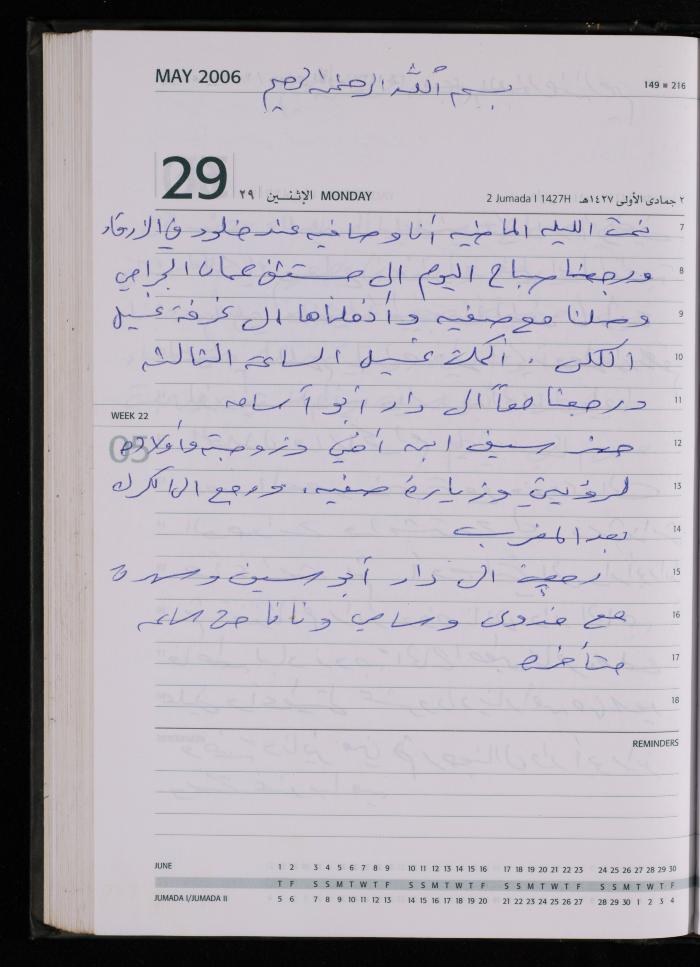 MAY 2006
بسم الله الرحمن الرحيم
149 ■ 216
29
٢٩ الإثنـين MONDAY
2 Jumada I 1427H ٢ جمادى الأولى ١٤٢٧هـ
7 نمت الليله الماضيه أنا وصافيه عند خلود في الزرقاء
8 ورجعنا صباح اليوم الى مستشفى عمان الجراحي
9 وصلنا مع صفيه وأدخلناها الى غرفة غسيل
10 الكلى . أكملت غسيل الساعه الثالثه
11 ورجعنا معاً الى دار أبو أسامه
WEEK 22
05
12 حضر سيف ابن أخي وزوجته وأولاده
13 لرؤيتي وزيارة صفيه، ورجع الى الكرك
14 بعد المغرب
15 رجعت الى دار أبو سيف وسهرة
16 مع فدوى وسامي ونانا حتى ساعه
17 متأخره
18
REMINDERS
JUNE 1 2 3 4 5 6 7 8 9 10 11 12 13 14 15 16 17 18 19 20 21 22 23 24 25 26 27 28 29 30
T F S S M T W T F S S M T W T F S S M T W T F S S M T W T F
JUMADA I/JUMADA II 5 6 7 8 9 10 11 12 13 14 15 16 17 18 19 20 21 22 23 24 25 26 27 28 29 30 1 2 3 4